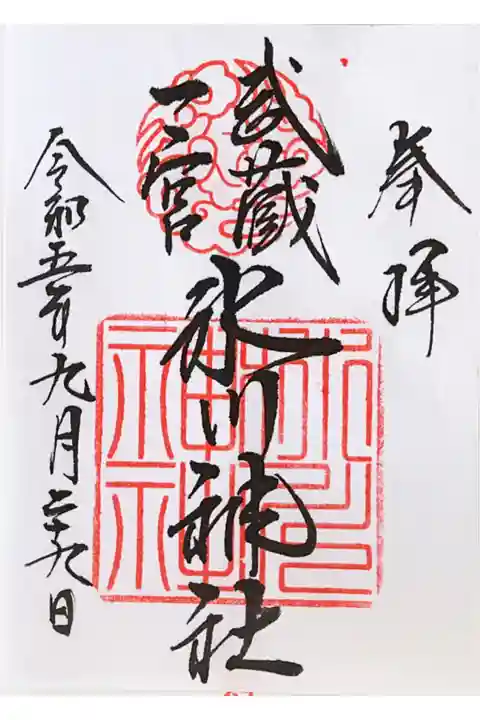 奉拝
武蔵
一宮
氷川神社
令和五年九月二十九日
氷川神社